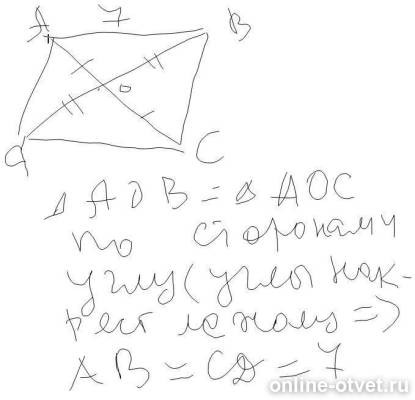 A 7 B
О
Д C
Δ AOB = Δ AOC
по сторонам и
углу (углы нак-
рест лежащ =>
AB = CD = 7
online-otvet.ru